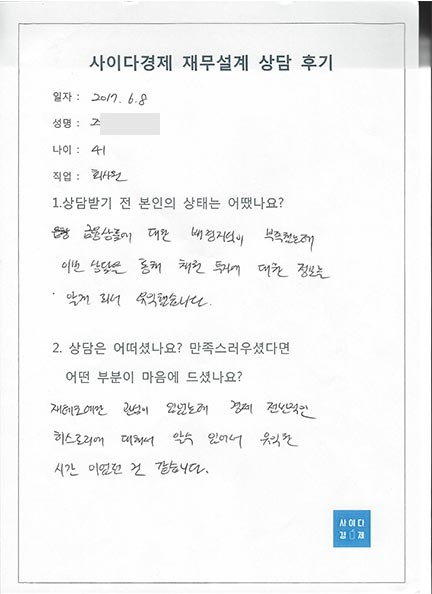 사이다경제 재무설계 상담 후기
일자 : 2017. 6. 8
성명 : 조
나이 : 41
직업 : 회사원
1.상담받기 전 본인의 상태는 어땠나요?
금융상품에 대한 배경지식이 부족했는데
이번 상담을 통해 채권 투자에 대한 정보를
알게 되서 유익했습니다.
2. 상담은 어떠셨나요? 만족스러우셨다면
어떤 부분이 마음에 드셨나요?
재테크에만 관심이 있었는데 경제 전반적인
히스토리에 대해서 알수 있어서 유익한
시간 이었던 것 같습니다.
사이다
경제